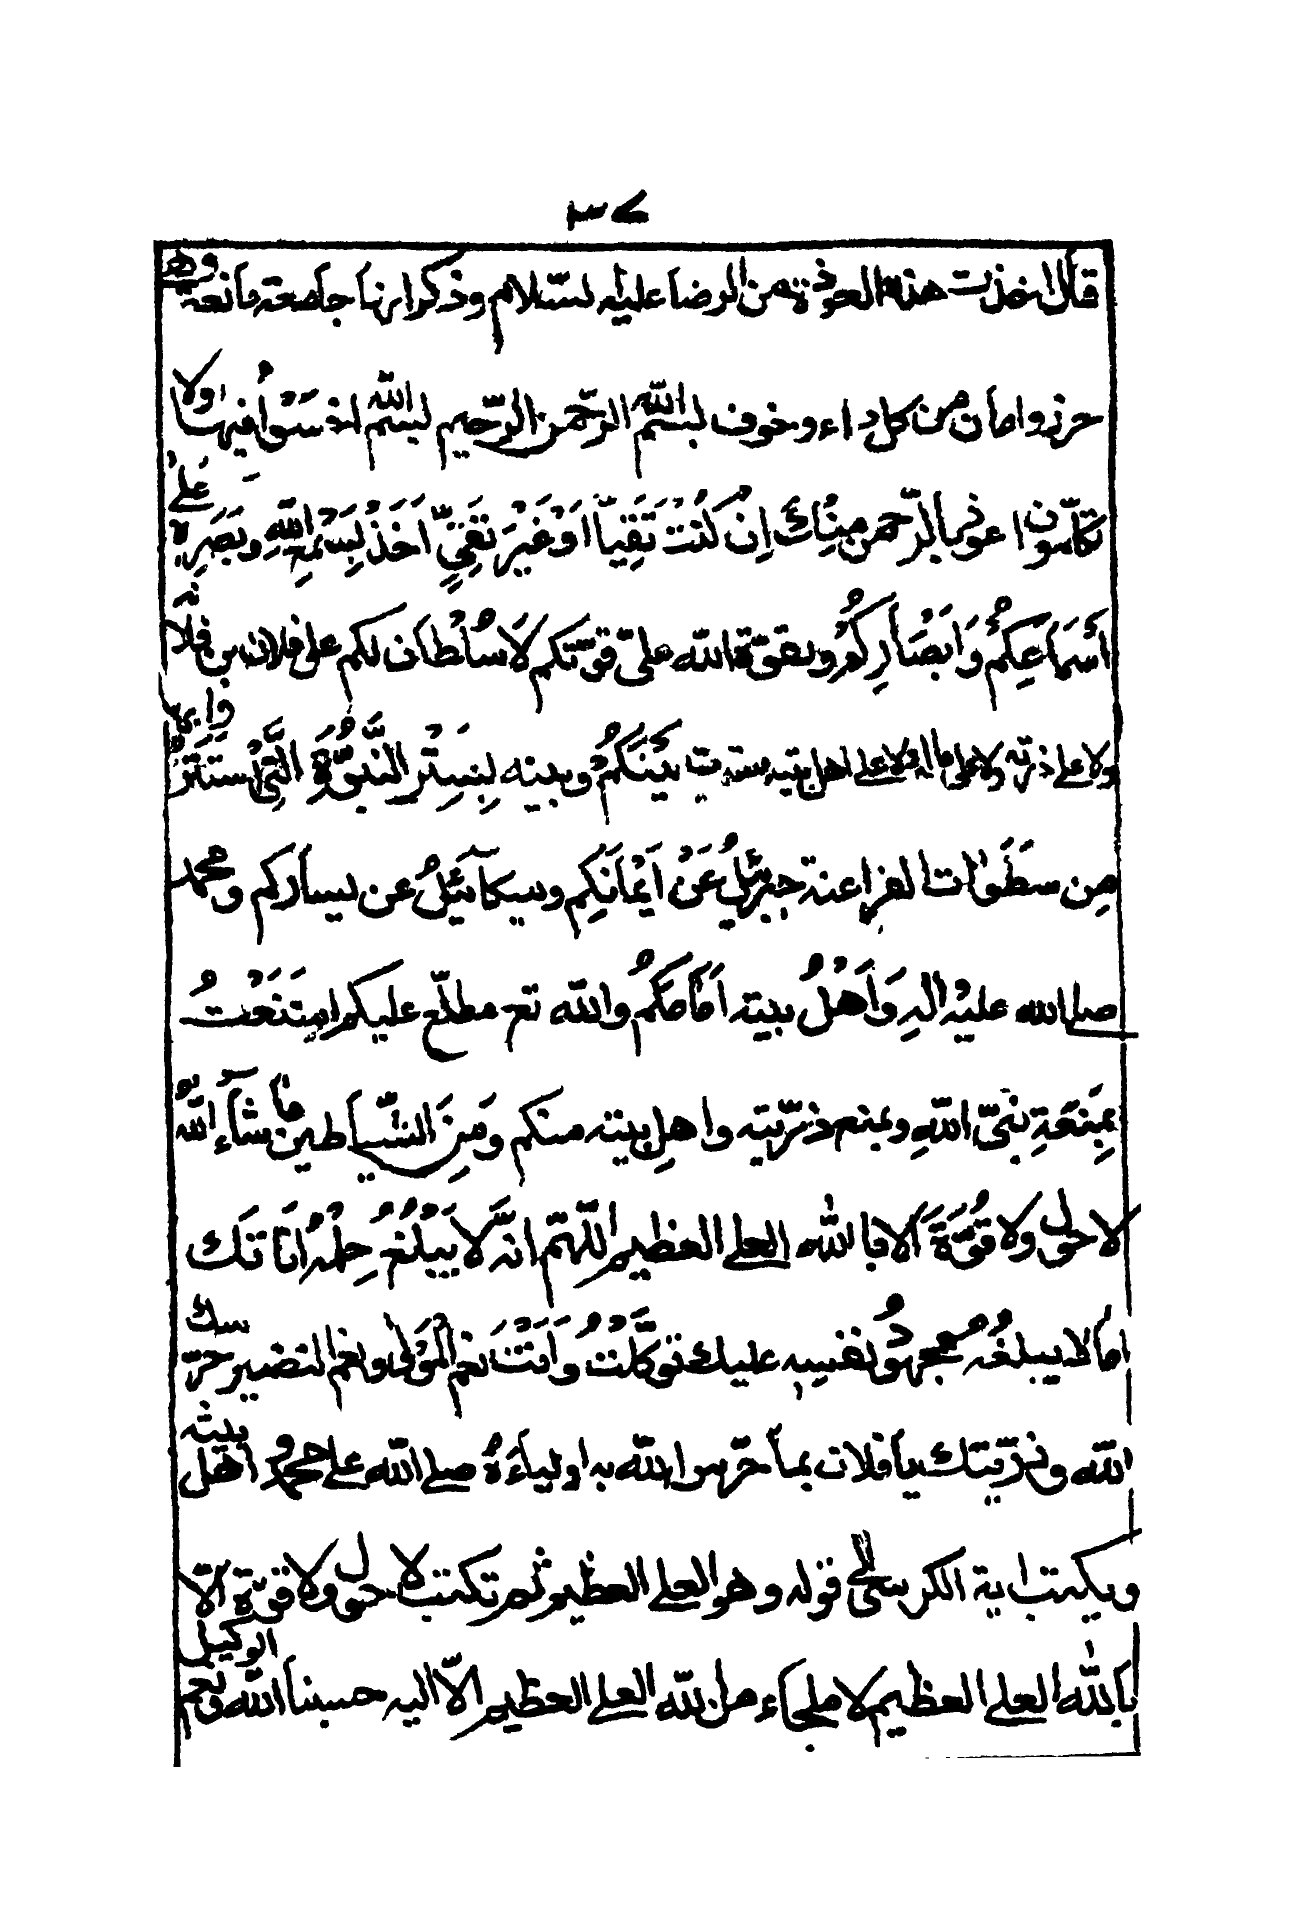 ٣٤
قال اخذت هذه العوذة من الرضا عليه لسّلام وذكر انها جامعة مانعة وهى
حرز وامان من كل داء وخوف بسم الله الرحمن الرحيم بسم الله اخسؤا فيها ولا
تكلمون اعوذ بالرحمن منك ان كنت تقيا او غير تقي اخذت بسمع الله وبصره على
اسماعكم وابصاركم وبقوة الله على قوتكم لا سلطان لكم على فلان بن فلانه
ولا على ذريته ولا على ماله ولا على اهل بيته سترت بينكم وبينه بستر النبوة التي استتروا به
من سطوات الفراعنة جبرئيل عن ايمانكم وميكائيل عن يساركم ومحمد
صلى الله عليه واله واهل بيته امامكم والله تع مطلع عليكم امتنعت
بمنعة نبي الله وبمنع ذريته واهل بيته منكم ومن الشياطين ما شاء الله
لا حول ولا قوة الا بالله العلي العظيم اللهم انه لا يبلغ حلمه اناتك
اما لا يبلغه مجهود نفسه عليك توكلت وانت نعم المولى ونعم النصير حرسك
الله وذريتك يا فلان بما حرس الله به اولياءه صلى الله على محمد واهل بيته
ويكتب اية الكرسي الى قوله وهو العلي العظيم ثم تكتب لا حول ولا قوة الا
بالله العلي العظيم لا ملجاء من الله العلي العظيم الا اليه حسبنا الله ونعم الوكيل